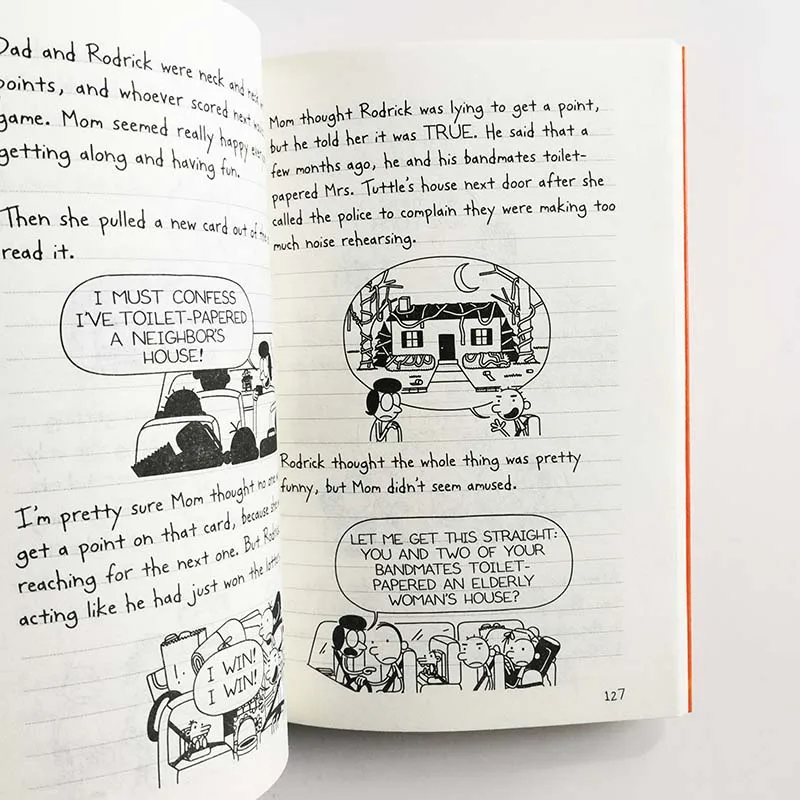 Dad and Rodrick were neck and neck
points, and whoever scored next
game. Mom seemed really happy
getting along and having fun.
Then she pulled a new card out of
read it.
I MUST CONFESS
I'VE TOILET-PAPERED
A NEIGHBOR'S
HOUSE!
I'm pretty sure Mom thought no
get a point on that card, because
reaching for the next one. But
acting like he had just won the
I WIN!
I WIN!
Mom thought Rodrick was lying to get a point,
but he told her it was TRUE. He said that a
few months ago, he and his bandmates toilet-
papered Mrs. Tuttle's house next door after she
called the police to complain they were making too
much noise rehearsing.
Rodrick thought the whole thing was pretty
funny, but Mom didn't seem amused.
LET ME GET THIS STRAIGHT:
YOU AND TWO OF YOUR
BANDMATES TOILET-
PAPERED AN ELDERLY
WOMAN'S HOUSE?
127